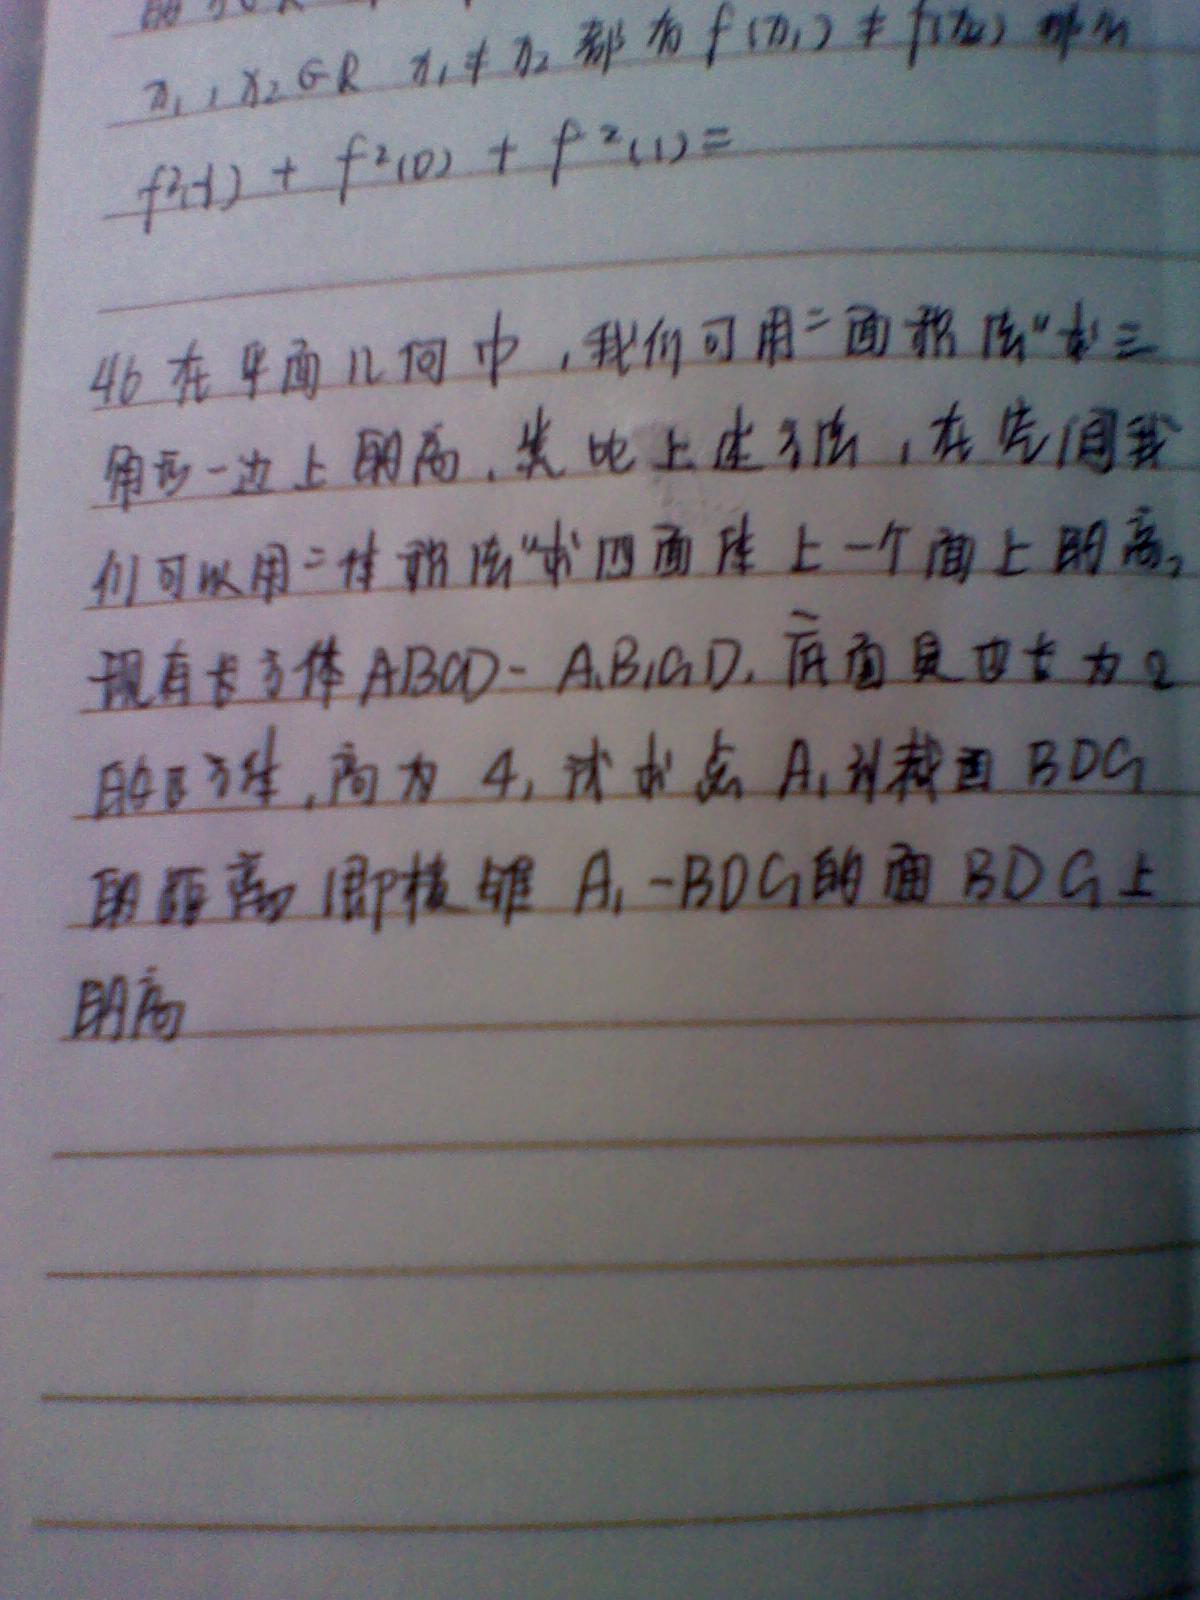 x₁,x₂∈R x₁≠x₂ 都有 f(x₁)≠f(x₂) 那么
f²(-1) + f²(0) + f²(1)=
46 在平面几何中,我们可用"面积法"求三
角形一边上的高,类比上述方法,在空间我
们可以用"体积法"求四面体上一个面上的高,
现有长方体ABCD-A₁B₁C₁D₁底面是边长为2
的正方体,高为4,试求点A₁到截面BDC₁
的距离 即棱锥 A₁-BDC₁的面BDC₁上
的高